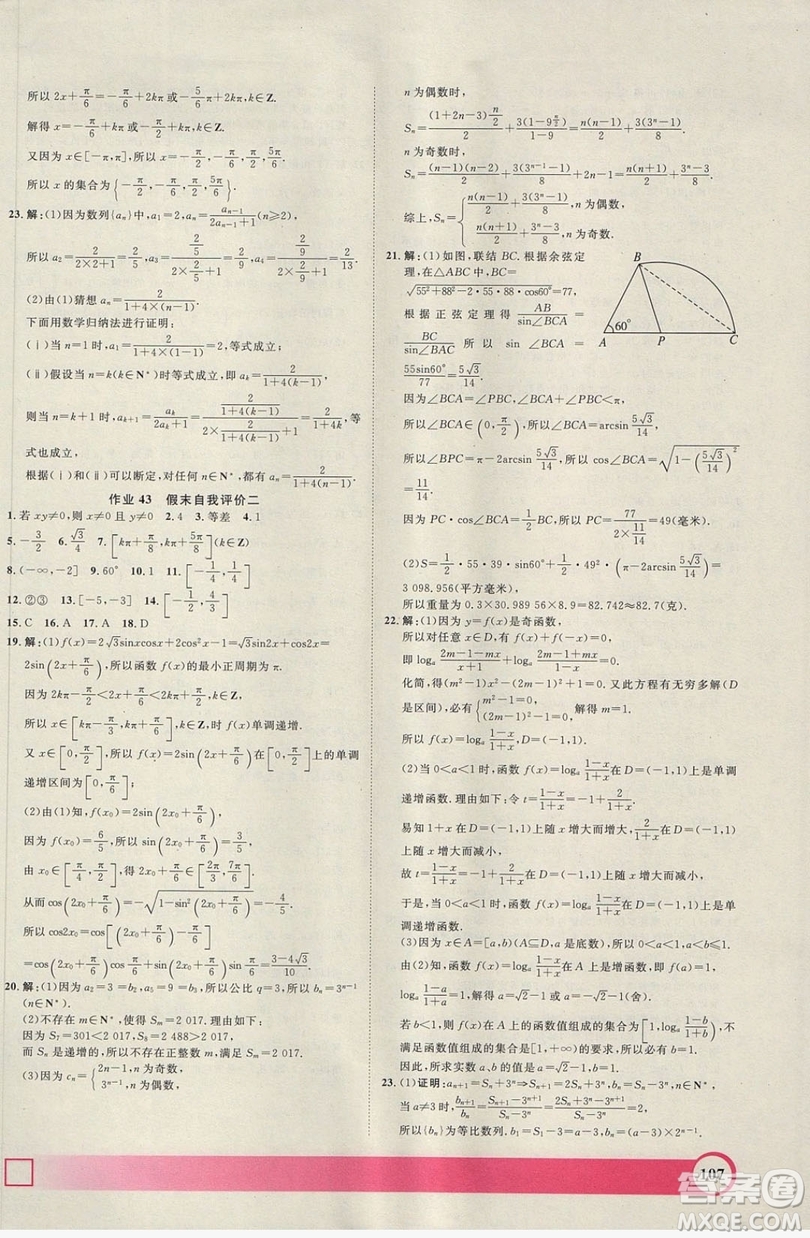 所以 2x+π/6=-π/6+2kπ 或-5/6π+2kπ,k∈Z.
解得 x=-π/6+kπ 或-π/2+kπ,k∈Z.
又因为 x∈[-π,π],所以 x=-π/6,-π/2,π/2,5π/6.
所以 x 的集合为{-π/6,-π/2,π/2,5π/6}.
23.解:(1)因为数列{aₙ}中,a₁=2,aₙ=aₙ₋₁/(2aₙ₋₁+1)(n≥2),
所以 a₂=2/(2×2+1)=2/5,a₃=(2/5)/(2×2/5+1)=2/9,a₄=(2/9)/(2×2/9+1)=2/13.
(2)由(1)猜想 aₙ=2/(1+4×(n-1)).
下面用数学归纳法进行证明:
(ⅰ)当 n=1 时,a₁=2/(1+4(1-1))=2,等式成立;
(ⅱ)假设当 n=k(k∈N*)时等式成立,即 aₖ=2/(1+4(k-1)),
则当 n=k+1 时,aₖ₊₁=aₖ/(2aₖ+1)=(2/(1+4(k-1)))/(2×2/(1+4(k-1))+1)=2/(1+4k),等
式也成立.
根据(ⅰ)和(ⅱ)可以断定,对任何 n∈N*,都有 aₙ=2/(1+4(n-1)).
作业 43 假末自我评价二
1.若 xy≠0,则 x≠0 且 y≠0 2.4 3.等差 4.1
5.-3/2 6.√3/4 7.[kπ+π/8,kπ+5π/8](k∈Z)
8.(-∞,-2] 9.60° 10.1 11.[-1/4,1/4]
12.②③ 13.[-5,-3] 14.[-√2/4,√2/4]
15.C 16.A 17.A 18.D
19.解:(1)f(x)=2√3sinxcosx+2cos²x-1=√3sin2x+cos2x=
2sin(2x+π/6),所以函数 f(x)的最小正周期为 π.
因为 2kπ-π/2<2x+π/6<2kπ+π/2,
所以 x∈[kπ-π/3,kπ+π/6],k∈Z 时,f(x)单调递增.
又 x∈[0,π/2],所以 f(x)=2sin(2x+π/6)在[0,π/2]上的单调
递增区间为[0,π/6].
(2)由(1)知,f(x₀)=2sin(2x₀+π/6),
因为 f(x₀)=6/5,所以 sin(2x₀+π/6)=3/5.
由 x₀∈[π/4,π/2],得 2x₀+π/6∈[2π/3,7π/6],
从而 cos(2x₀+π/6)=-√(1-sin²(2x₀+π/6))=-4/5.
所以 cos2x₀=cos[(2x₀+π/6)-π/6]
=cos(2x₀+π/6)cosπ/6+sin(2x₀+π/6)sinπ/6=(3-4√3)/10.
20.解:(1)因为 a₂=3=b₂,a₅=9=b₃,所以公比 q=3,所以 bₙ=3ⁿ⁻¹
(n∈N*).
(2)不存在 m,使得 Sₘ=2 017.理由如下:
因为 S₇=301<2 017,S₈=2 488>2 017,
而 Sₙ 是递增的,所以不存在 m,满足 Sₘ=2 017.
(3)因为 cₙ={2n-1,n 为奇数, 3ⁿ⁻¹,n 为偶数,
n 为偶数时,
Sₙ=(1+2n-3)n/2/2+3(1-9^(n/2))/(1-9)=n(n-1)/2+3(3ⁿ-1)/8.
n 为奇数时,
Sₙ=(n-1)(n-2)/2+3(3ⁿ⁻¹-1)/8+2n-1=n(n+1)/2+(3ⁿ-3)/8.
综上,Sₙ={n(n-1)/2+3(3ⁿ-1)/8,n 为偶数, n(n+1)/2+(3ⁿ-3)/8,n 为奇数.
21.解:(1)如图,联结 BC.根据余弦定
理,在△ABC 中,BC=
√(55²+88²-2·55·88·cos60°)=77,
根据正弦定理得 AB/sin∠BCA=
BC/sin∠BAC 所以 sin∠BCA=
55sin60°/77=5√3/14.
因为∠BCA=∠PBC,∠BCA+∠PBC<π,
所以∠BCA∈(0,π/2),所以∠BCA=arcsin5√3/14,
所以∠BPC=π-2arcsin5√3/14,cos∠BCA=√(1-(5√3/14)²)
=11/14.
因为 PC·cos∠BCA=77/2,所以 PC=77/(2×11/14)=49(毫米).
(2)S=1/2·55·39·sin60°+1/2·49²·(π-2arcsin5√3/14)≈
3 098.956(平方毫米).
所以重量为 0.3×30.989 56×8.9=82.742≈82.7(克).
22.解:(1)因为 y=f(x)是奇函数,
所以对任意 x∈D,有 f(x)+f(-x)=0,
即 logₐ(2m-1-mx)/(x+1)+logₐ(2m-1+mx)/(1-x)=0.
化简,得(m²-1)x²-(2m-1)²+1=0.又此方程有无穷多解(D
是区间),必有{m²-1=0, (2m-1)²-1=0, 解得 m=1.
所以 f(x)=logₐ(1-x)/(1+x),x∈D.
(2)当 0<a<1 时,函数 f(x)=logₐ(1-x)/(1+x)在 D=(-1,1)上是单调
递增函数.理由如下:令 t=(1-x)/(1+x)=-1+2/(1+x).
易知 1+x 在 D=(-1,1)上随 x 增大而增大,2/(1+x)在 D=(-1,1)
上随 x 增大而减小,
故 t=(1-x)/(1+x)在 D=(-1,1)上随 x 增大而减小,
于是,当 0<a<1 时,函数 f(x)=logₐ(1-x)/(1+x)在 D=(-1,1)上是单
调递增函数.
(3)因为 x∈A=[a,b)⊆D(a 是底数),所以 0<a<1,a<b≤1.
由(2)知,函数 f(x)=logₐ(1-x)/(1+x)在 A 上是增函数,即 f(a)=1,
logₐ(1-a)/(1+a)=1,解得 a=√2-1 或 a=-√2-1(舍).
若 b<1,则 f(x)在 A 上的函数值组成的集合为[1,logₐ(1-b)/(1+b)),不
满足函数值组成的集合是[1,+∞)的要求,所以 b=1.
因此,所求实数 a、b 的值是 a=√2-1,b=1.
23.(1)证明:aₙ₊₁=Sₙ+3ⁿ⇒Sₙ₊₁=2Sₙ+3ⁿ,n∈N*,
当 a≠3 时,bₙ₊₁/bₙ=(Sₙ₊₁-3ⁿ⁺¹)/(Sₙ-3ⁿ)=(2Sₙ+3ⁿ-3ⁿ⁺¹)/(Sₙ-3ⁿ)=2,
所以{bₙ}为等比数列.Sₙ-3ⁿ=bₙ=(a-3)×2ⁿ⁻¹.
B
60°
A P C
107
答案圈
MXQE.COM